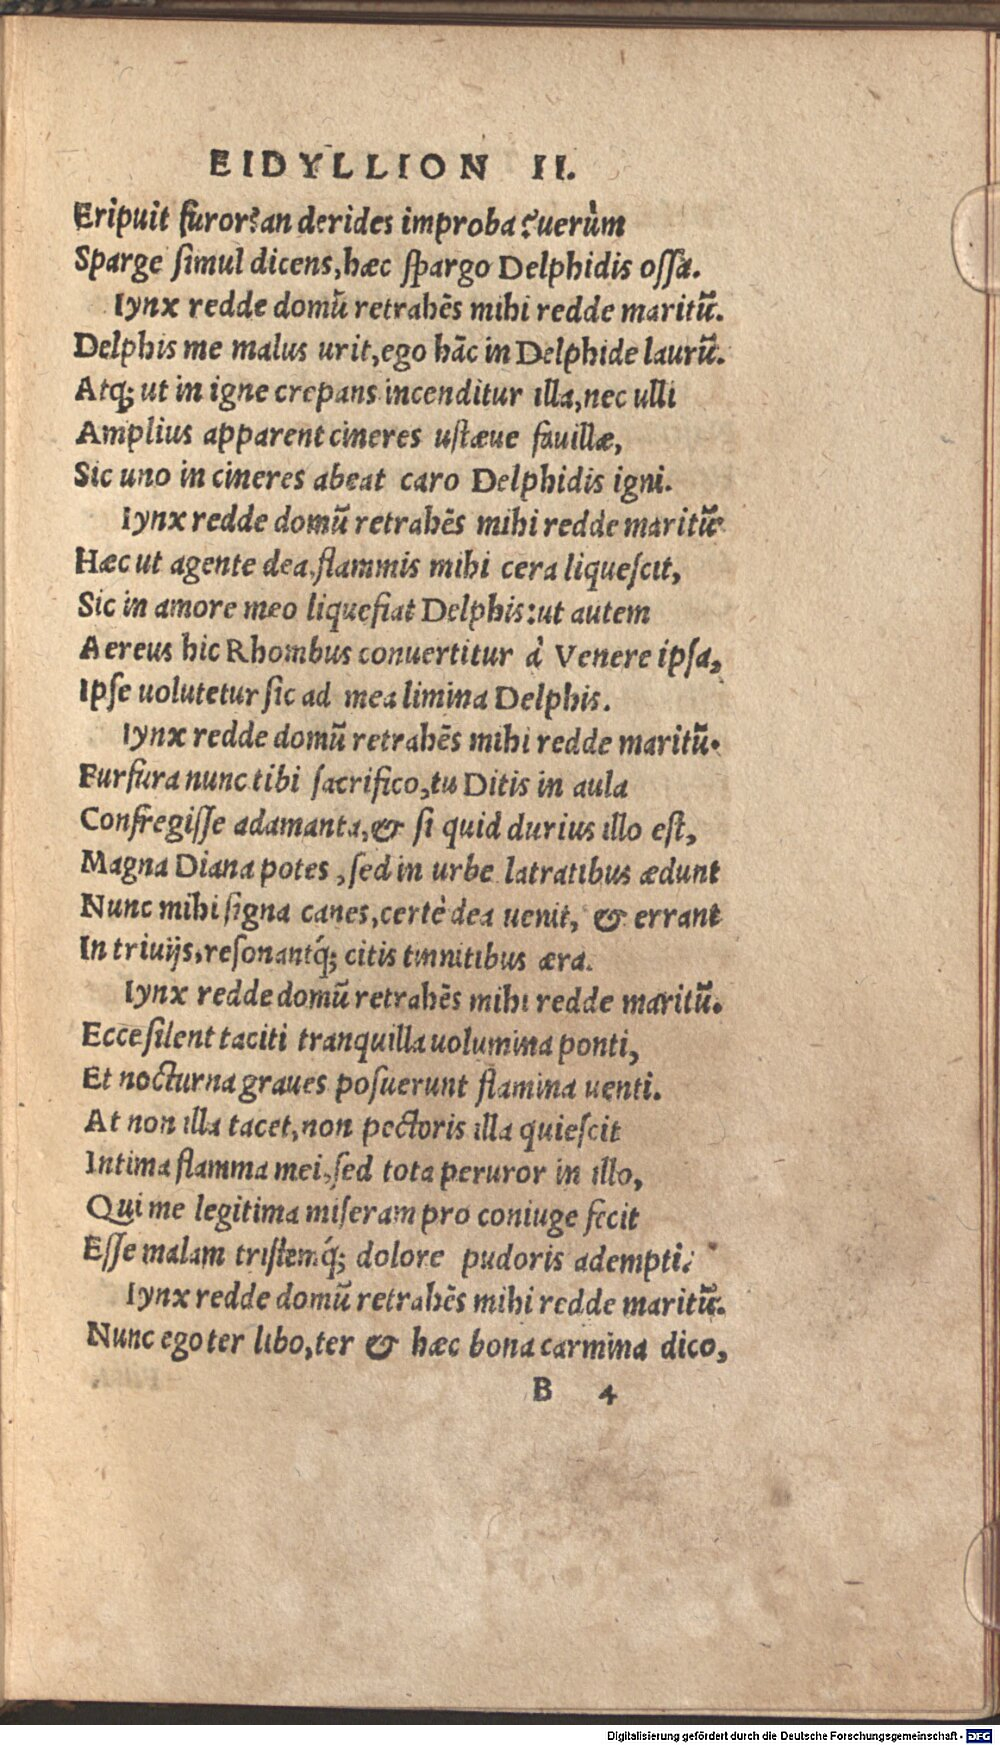 EIDYLLION II.
Eripuit furor? an derides improba? uerùm
Sparge simul dicens, hæc spargo Delphidis ossa.
Iynx redde domū retrahēs mihi redde maritū.
Delphis me malus urit, ego hāc in Delphide laurū.
Atq; ut in igne crepans incenditur illa, nec ulli
Amplius apparent cineres ustæue fauillæ,
Sic uno in cineres abeat caro Delphidis igni.
Iynx redde domū retrahēs mihi redde maritū.
Hæc ut agente dea, flammis mihi cera liquescit,
Sic in amore meo liquefiat Delphis: ut autem
Aereus hic Rhombus conuertitur à Venere ipsa,
Ipse uolutetur sic ad mea limina Delphis.
Iynx redde domū retrahēs mihi redde maritū.
Furfura nunc tibi sacrifico, tu Ditis in aula
Confregisse adamanta, & si quid durius illo est,
Magna Diana potes, sed in urbe latratibus ædunt
Nunc mihi signa canes, certè dea uenit, & errant
In triuijs, resonantq́; citis tinnitibus æra.
Iynx redde domū retrahēs mihi redde maritū.
Ecce silent taciti tranquilla uolumina ponti,
Et nocturna graues posuerunt flamina uenti.
At non illa tacet, non pectoris illa quiescit
Intima flamma mei, sed tota peruror in illo,
Qui me legitima miseram pro coniuge fecit
Esse malam tristemq́; dolore pudoris adempti.
Iynx redde domū retrahēs mihi redde maritū.
Nunc ego ter libo, ter & hæc bona carmina dico,
B 4
Digitalisierung gefördert durch die Deutsche Forschungsgemeinschaft - DFG